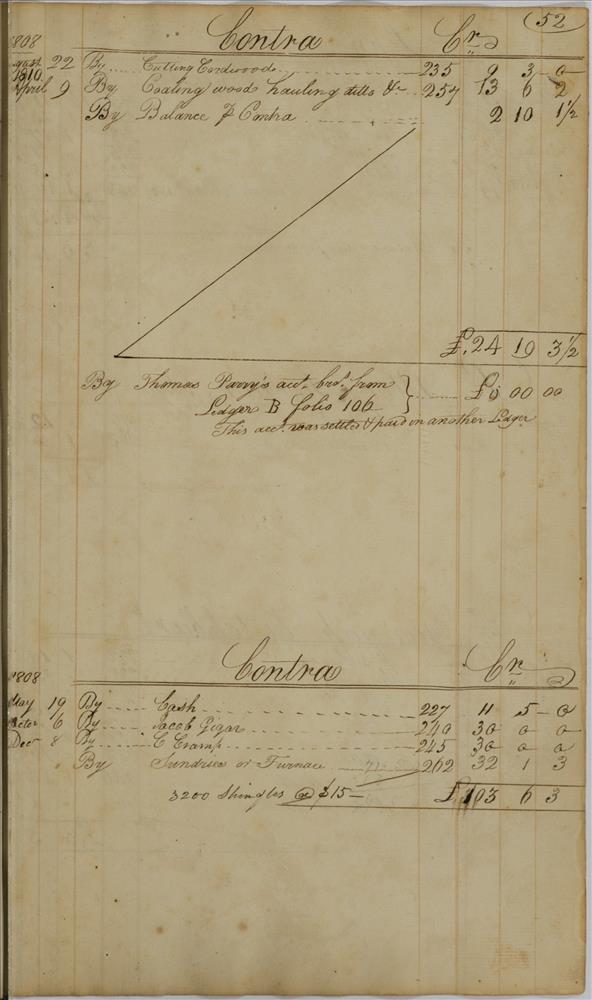 52
1808 Contra Cr
August 22 By Cutting Cordwood 235 9 3 0
1810
April 9 By Coaling wood hauling ditto &c 257 13 6 2
By Balance p Contra 2 10 1 1/2
£24 19 3 1/2
By Thomas Parry's acct. brot. from
Ledger B folio 106 £0 00 00
This acct. was settled & paid in another Ledger
1808 Contra Cr
May 19 By Cash 227 11 5 0
Octor 6 By Jacob Gigar 240 30 0 0
Decr 8 By C Cramp 245 30 0 0
By Sundries or Furnace 262 32 1 3
3200 Shingles @ $15
£103 6 3